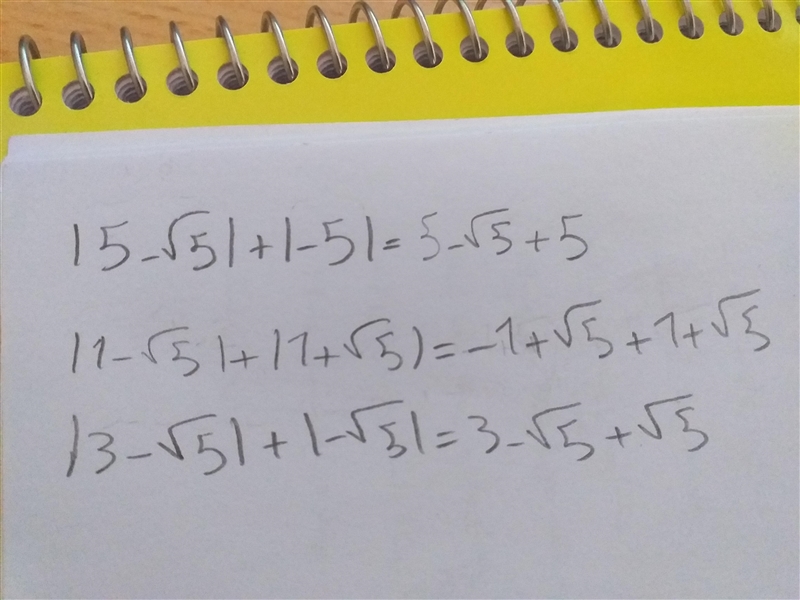 |5-√5|+|-5|=5-√5+5
|1-√5|+|1+√5|=-1+√5+1+√5
|3-√5|+|-√5|=3-√5+√5